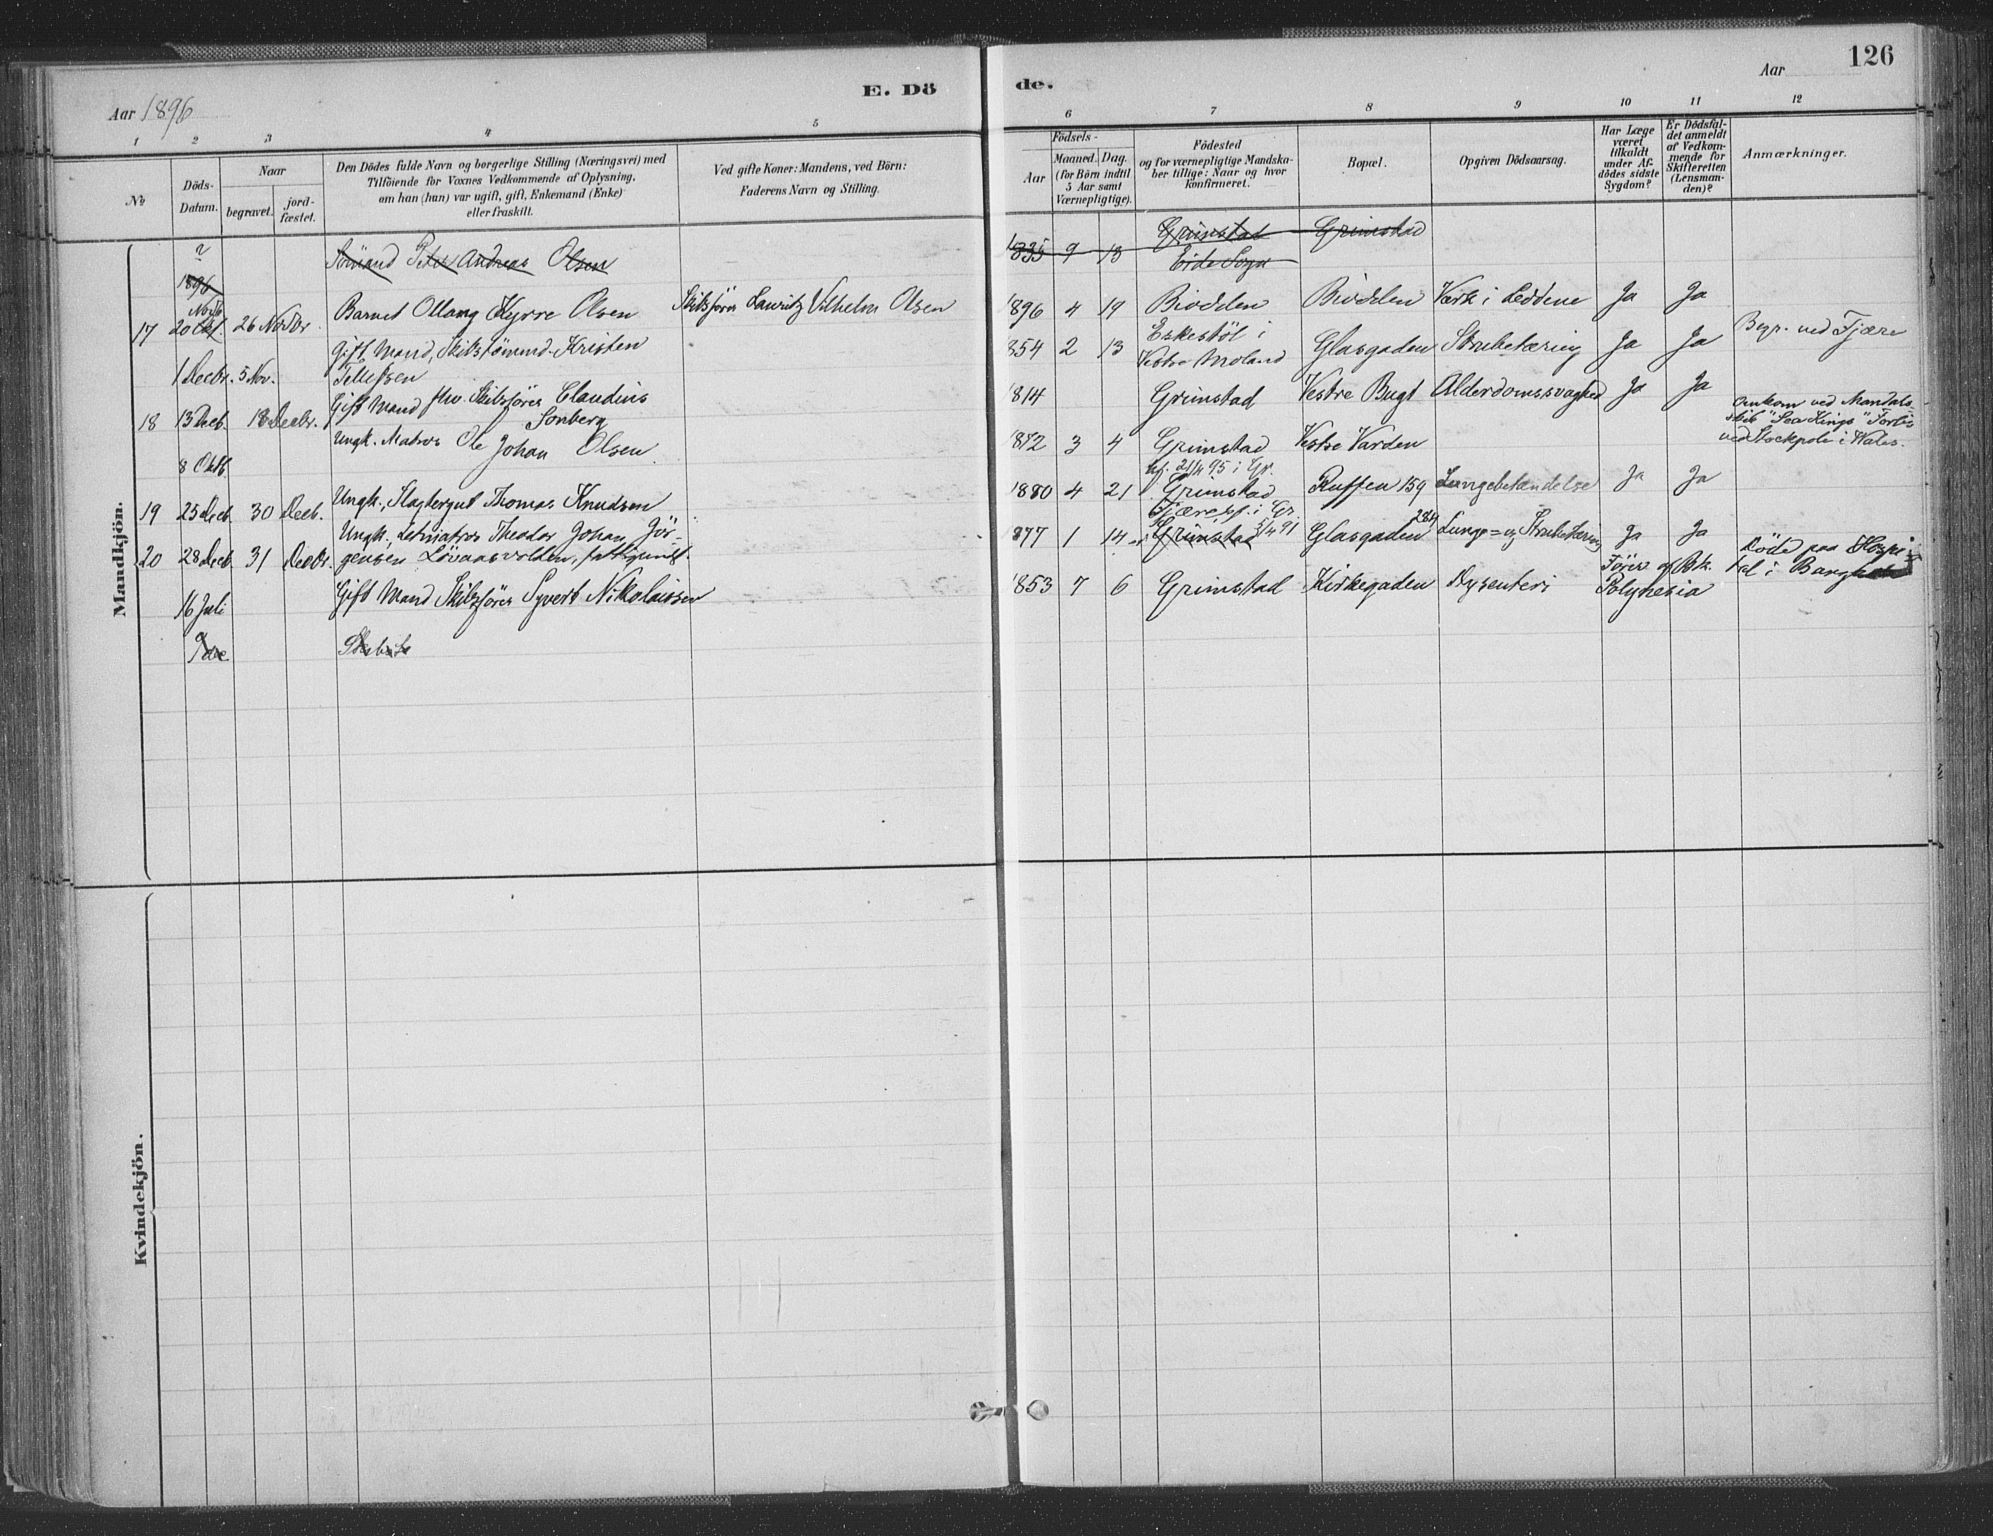 Aar 1896
E. Dö
de.
Aar
126
1 2 3 4 5 6 7 8 9 10 11 12
№
Döds-
Datum.
Naar
begravet.
jord-
fæstet.
Den Dödes fulde Navn og borgerlige Stilling (Næringsvei) med
Tilföiende for Voxnes Vedkommende af Oplysning,
om han (hun) var ugift, gift, Enkemand (Enke)
eller fraskilt.
Ved gifte Koner: Mandens, ved Börn:
Faderens Navn og Stilling.
Födsels-
Aar
Maaned. Dag.
(for Börn indtil
5 Aar samt
Værnepligtige).
Födested
og for værnepligtige Mandska-
ber tillige: Naar og hvor
konfirmeret.
Bopæl.
Opgiven Dödsaarsag.
Har Læge
været
tilkaldt
under Af-
dödes sidste
Sygdom?
Er Dödsfal-
det anmeldt
af Vedkom-
mende for
Skifteretten
(Lensman-
den)?
Anmærkninger.
Mandkjön.
?
1896
Sömand Peter Andreas Olsen
1835 9 13 Grimstad Grimstad
Eide Sogn
Novb
17 20 Okt. 26 Novbr. Barnet Ollang Kyrre Olsen Skibsförer Lauritz Vilhelm Olsen 1896 4 19 Biodden Biodden Værk i Leddene Ja Ja
Gift Mand, Skibstömmd. Kristen
1 Decbr. 5 Nov. Tellefsen 1854 2 13 Eskestöl i
Vestre Moland Glasgaden Strubetæring Ja Ja Begr. ved Fjære
Gift Mand fhv. Skibsförer Claudius
18 13 Decb. 18 Decbr. Sonberg 1814 Grimstad Vestre Bugt Alderdomssvaghed Ja Ja
8 Oktb. Ungk. Matros Ole Johan Olsen 1872 3 4 Grimstad Vestre Varden
Omkom ved Mandals
skib "Sea Kings" Forlis
ved Stockpole i Wales.
kf. 21/4 95 i Gr.
19 25 Decb. 30 Decb. Ungk. Slagtergut Thomas Knudsen 1880 4 21 Grimstad Ruffen 159 Lungebetændelse Ja Ja
Fjæresf. i Gr.
3/4 91
Ungk. Letmatros Theodor Johan Jör-
20 28 Decb. 31 Decbr. gensen Lövaasvolden, fattigunst. 1877 1 14 Grimstad Glasgaden 284 Lunge= og Strubetæring Ja Ja
16 Juli Gift Mand Skibsförer Syvert Nikolaissen 1853 7 6 Grimstad Kirkegaden Dysenteri Förer af Bk.
Polynesia
Döde paa Hospi-
tal i
Kvindekjön.